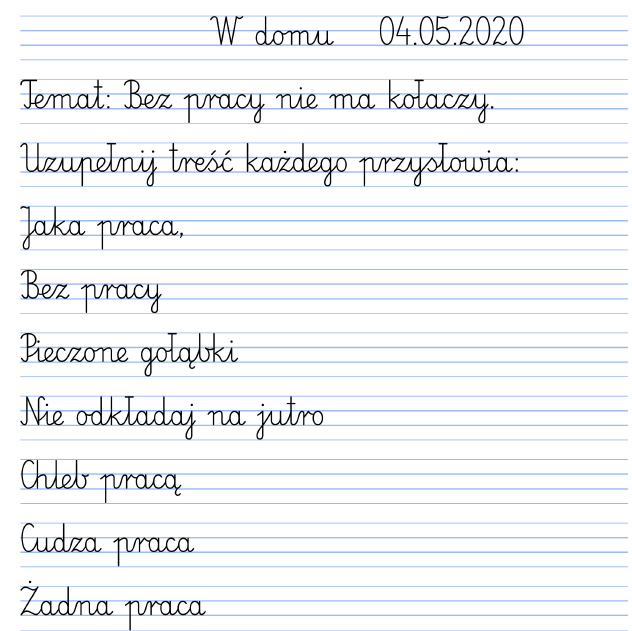 W domu 04.05.2020
Temat: Bez pracy nie ma kołaczy.
Uzupełnij treść każdego przysłowia:
Jaka praca,
Bez pracy
Pieczone gołąbki
Nie odkładaj na jutro
Chleb pracą
Cudza praca
Żadna praca